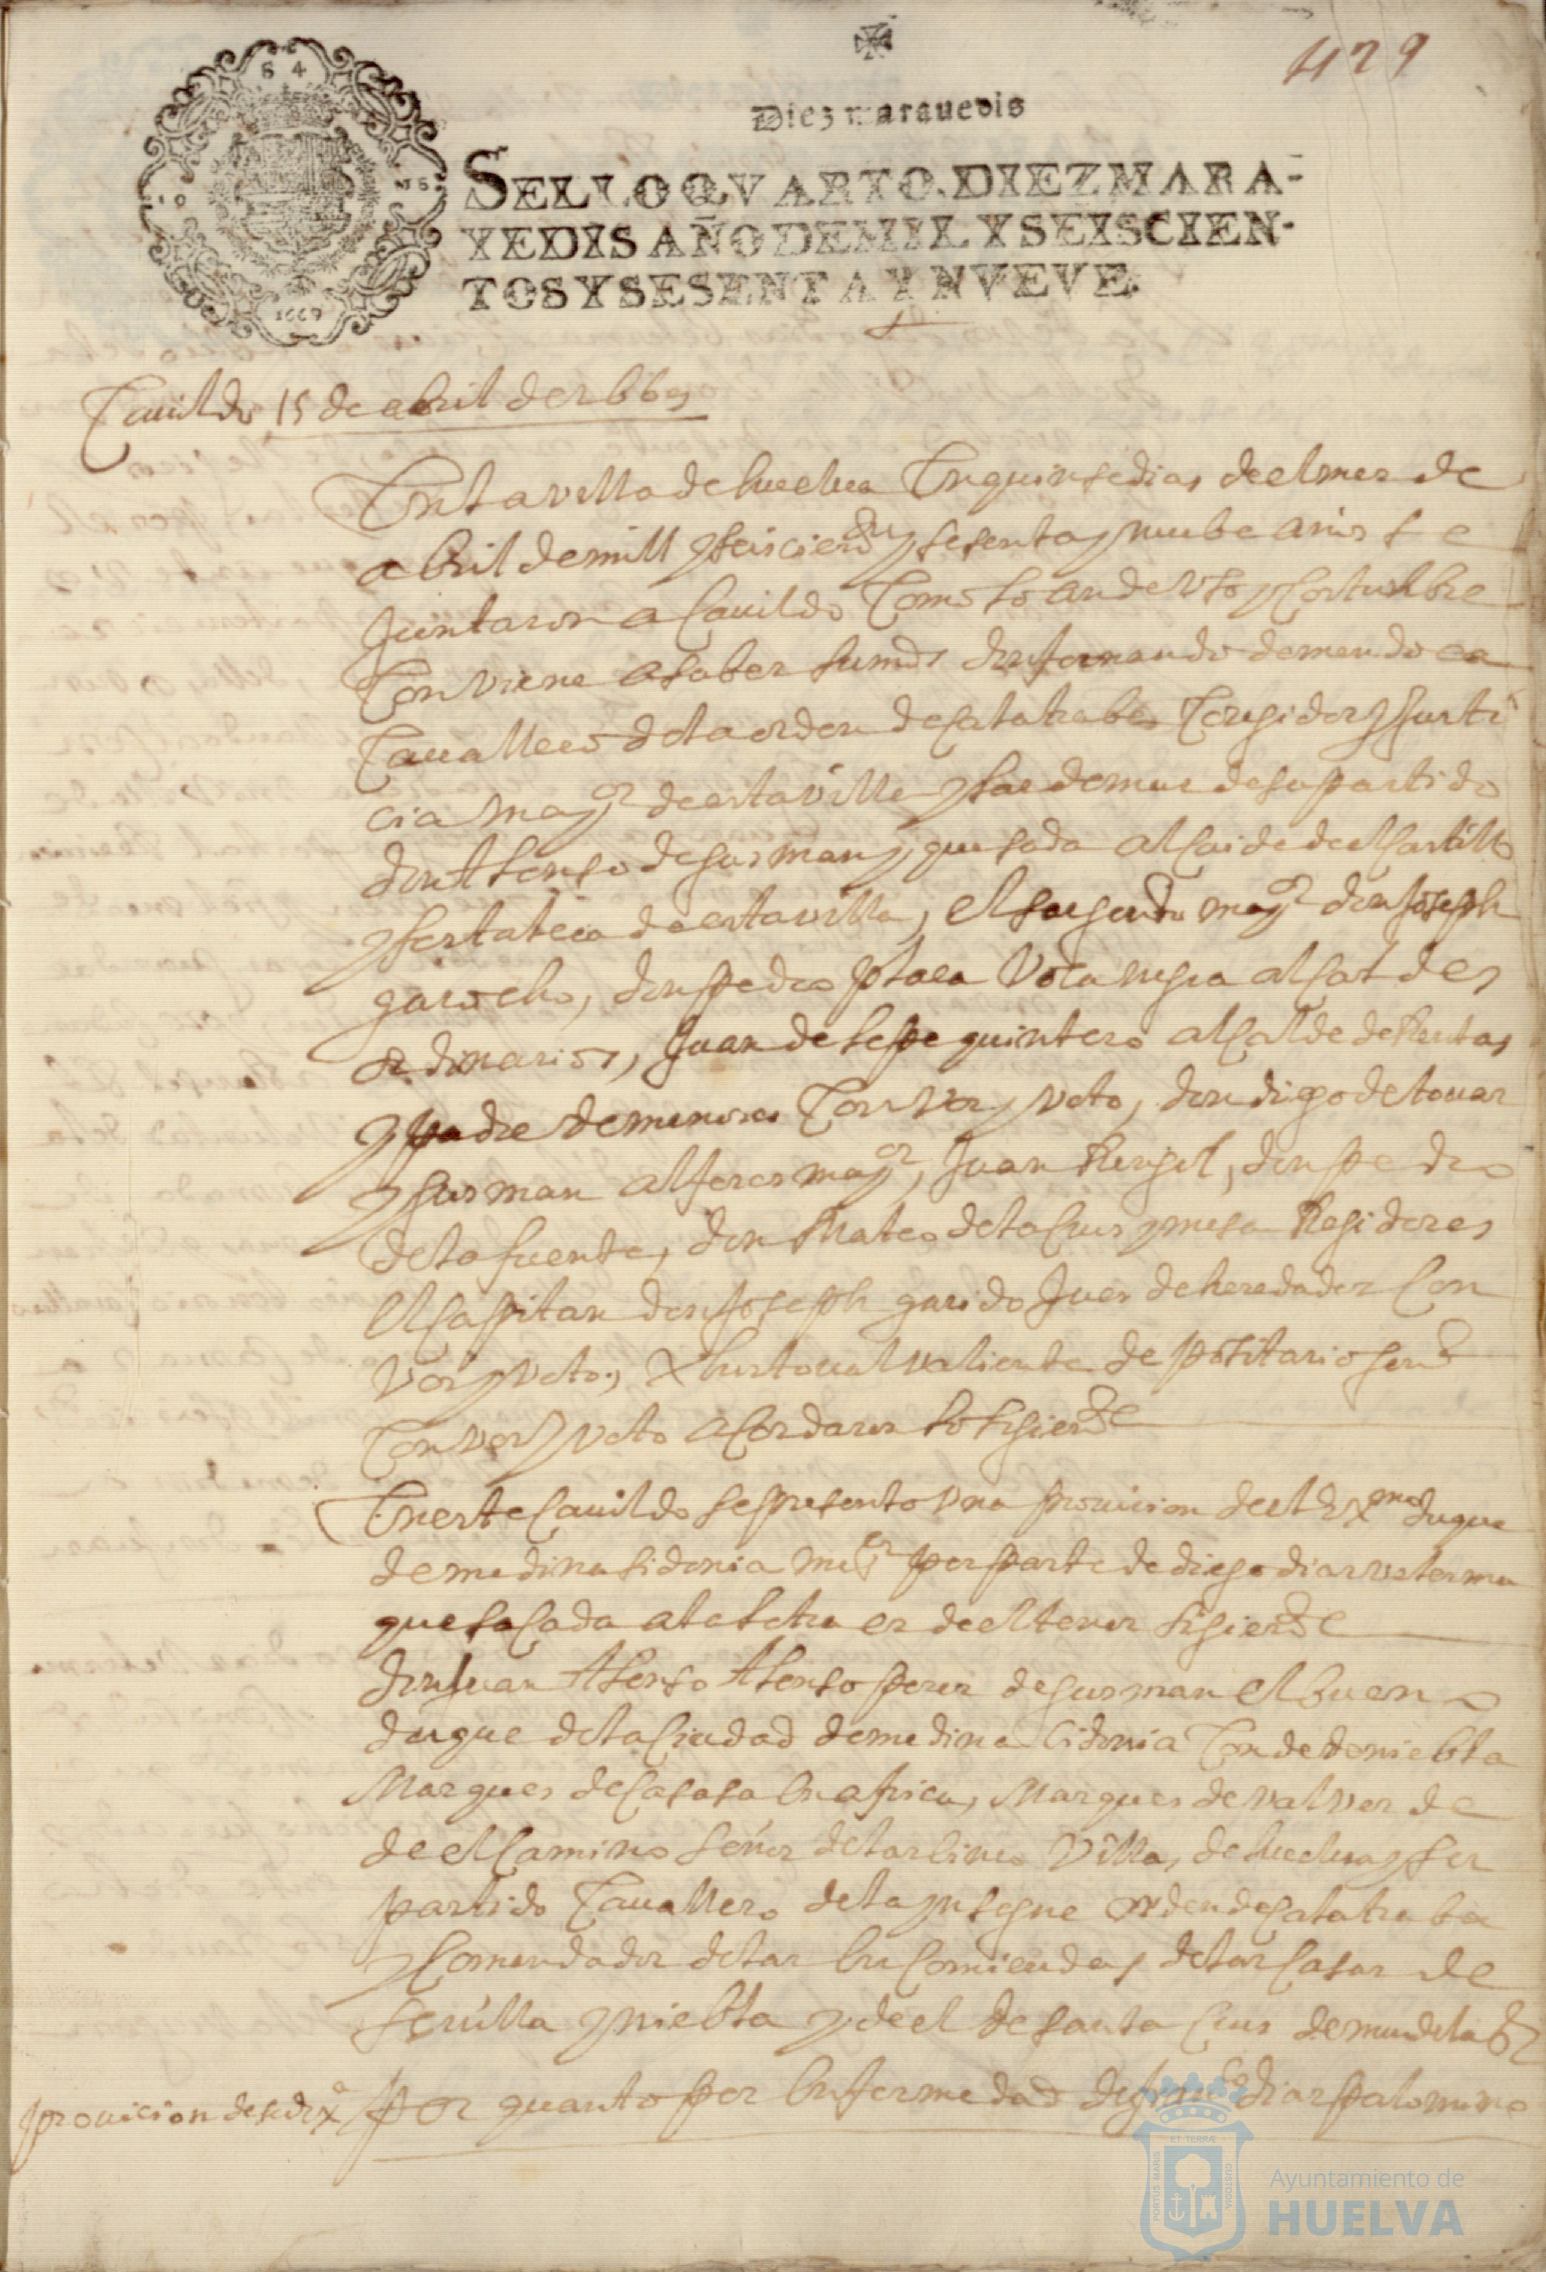 429
Diez maravedis
SELLO QVARTO, DIEZ MARA-
VEDIS AÑO DE MIL Y SEISCIEN-
TOS Y SESENTA Y NVEVE.
1669
Cauildo 15 de abril de 1669
En la villa de huelua En quinse dias de el mes de
abril de mill y seiscientos y sesenta y nuebe años se
Juntaron a Cauildo Como lo an de Vso y Costumbre
Conviene a saber su md don fernando de mendoca
Cauallero de la orden de Calatraba Coregidor y Justi
cia mayor de esta villa y las demas de su partido
don Alonso de gusman y quesada alcaide de el Castillo
y fortaleca de esta villa, el sargento mayor don Joseph
garocho, don pedro plaça Vocanegra alcaldes
ordinarios, Juan de lepe quintero alcalde de Rentas
y padre de menores Con Vos y voto, don diego de touar
y gusman alferes mayor, Juan Rengel, don pedro
de la fuente, don Mateo de la Crus y mesa Regidores
el Capitan don Joseph garido Jues de heredades Con
Vos y voto, Xpistoual valiente depositario genl
Con vos y voto acordaron lo sigiente
En este Cauildo se presento Vna prouicion de el Exmo duque
de medina sidonia mi sr por parte de diego dias veterma
que sacada a la letra es de el tenor sigiente
don Juan Alonso Alonso peres de gusman el bueno
duque de la Ciudad de medina Cidonia Conde de niebla
Marques de Casasa en africa, Marques de valverde
de el Camino señor de las cinco Villas, de huelua y su
partido Cauallero de la ynsigne orden de Calatraba
y Comendador de las encomiendas de las Casas de
seuilla y niebla y de el de santa Crus de mudela &
prouicion de su exa
por quanto por enfermedad de dias palomino
PORTUS MARIS ET TERRAE CUSTODIA
Ayuntamiento de
HUELVA